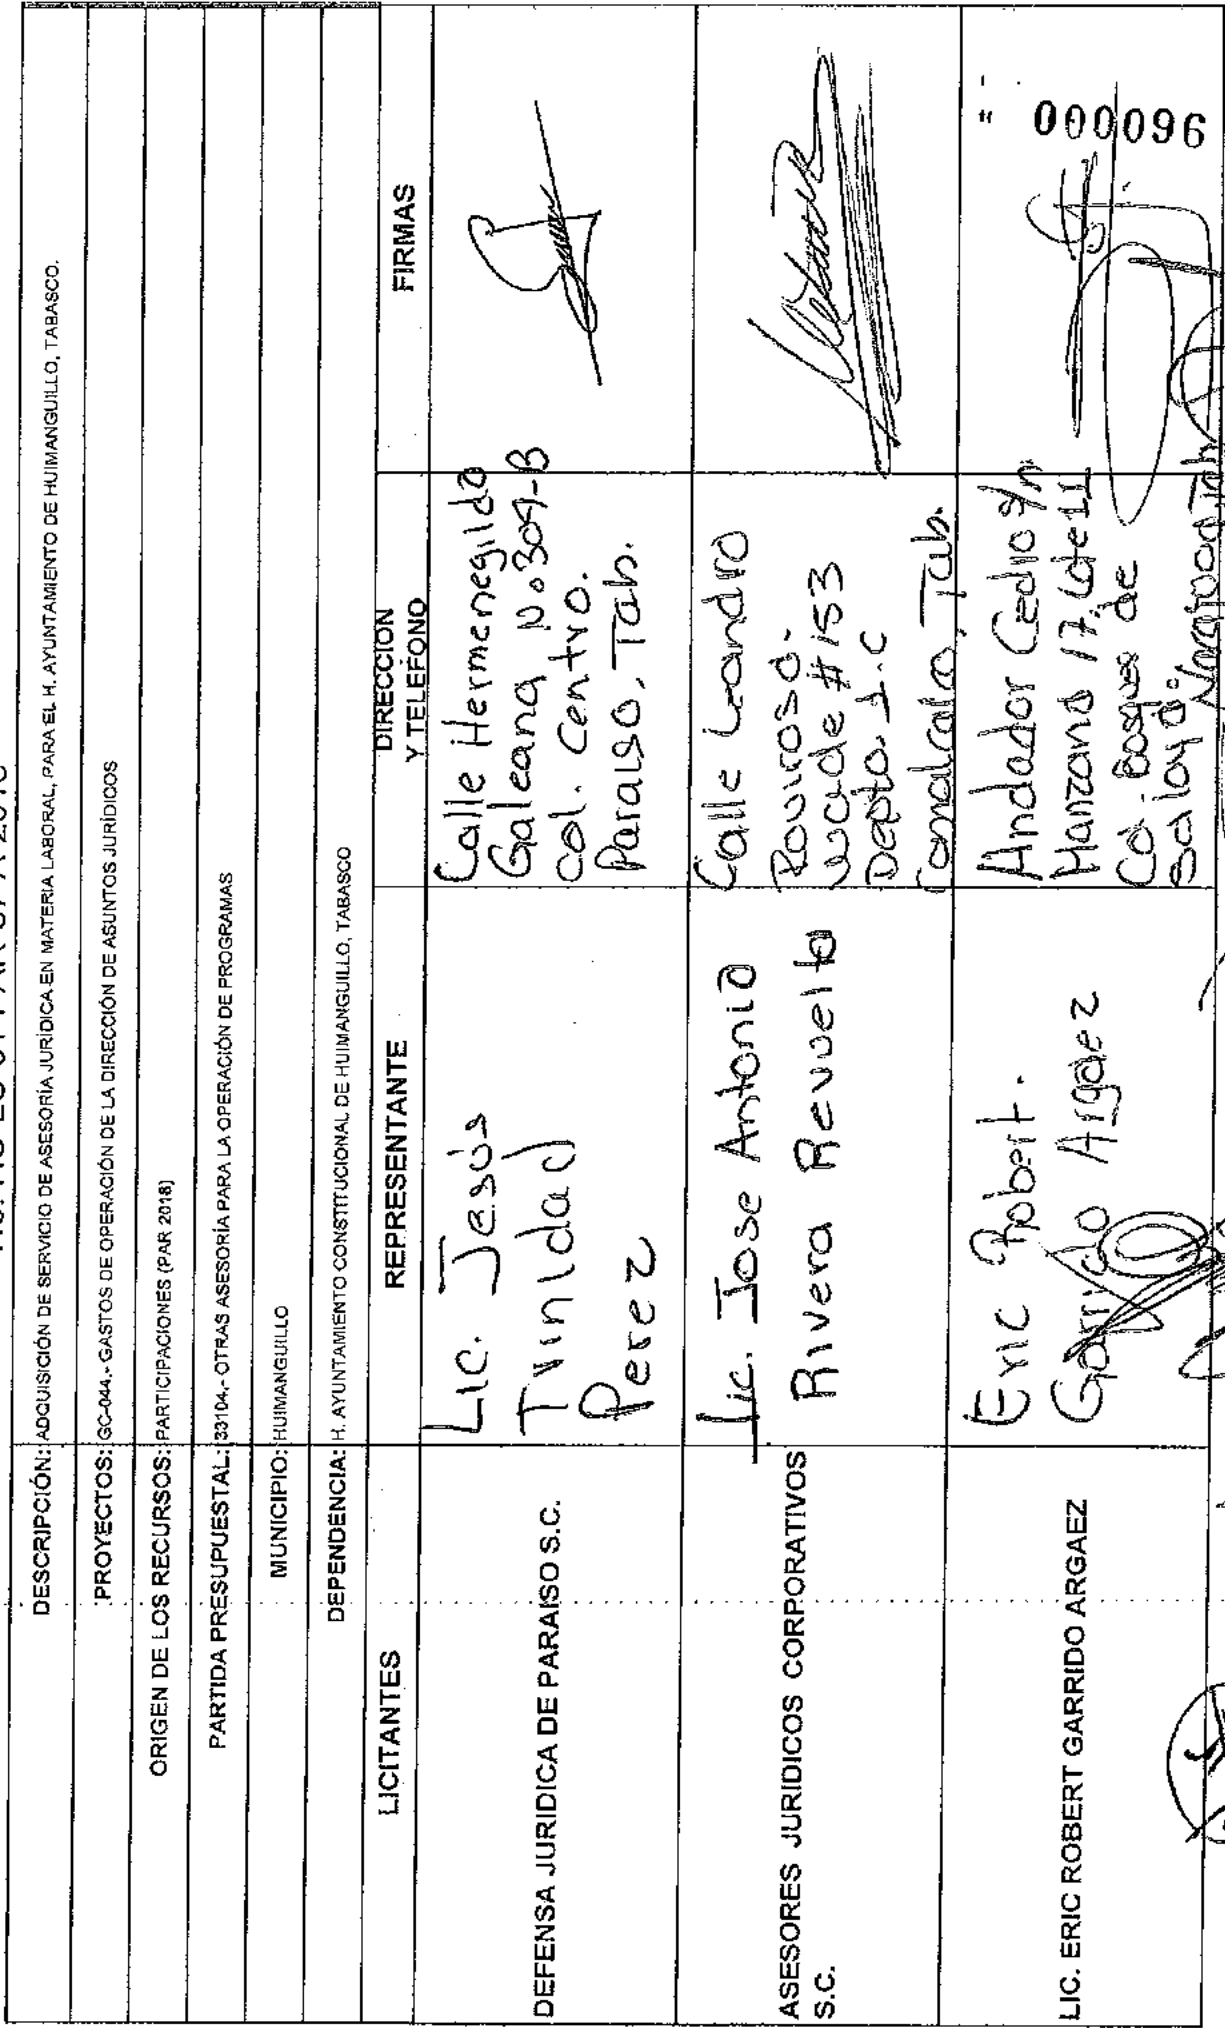 DESCRIPCIÓN: ADQUISICIÓN DE SERVICIO DE ASESORÍA JURÍDICA EN MATERIA LABORAL, PARA EL H. AYUNTAMIENTO DE HUIMANGUILLO, TABASCO.
PROYECTOS: GC-044.- GASTOS DE OPERACIÓN DE LA DIRECCIÓN DE ASUNTOS JURÍDICOS
ORIGEN DE LOS RECURSOS: PARTICIPACIONES (PAR 2018)
PARTIDA PRESUPUESTAL: 33104.- OTRAS ASESORÍA PARA LA OPERACIÓN DE PROGRAMAS
MUNICIPIO: HUIMANGUILLO
DEPENDENCIA: H. AYUNTAMIENTO CONSTITUCIONAL DE HUIMANGUILLO, TABASCO
LICITANTES
REPRESENTANTE
DIRECCION
Y TELÉFONO
FIRMAS
DEFENSA JURIDICA DE PARAISO S.C.
Lic. Jesús
Trinidad
Perez
Calle Hermenegildo
Galeana No 304-B
Col. Centro.
Paraiso, Tab.
ASESORES JURIDICOS CORPORATIVOS
S.C.
Lic. Jose Antonio
Rivera Revuelta
Calle Leandro
Rovirosa
Wade #153
Depto. 1-C
Comalcalco, Tab.
LIC. ERIC ROBERT GARRIDO ARGAEZ
Eric Robert.
Garrido Argaez
Andador Cedro s/n
Manzana 17, Lote 11
Col. Bosques de
Saloya
Nacajuca, Tab
000096